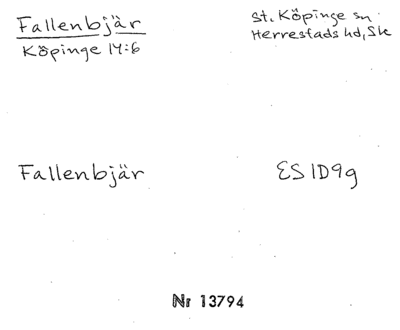 Fallenbjär
Köpinge 14:6
St. Köpinge sn
Herrestads hd, Sk
Fallenbjär
ES 1D9g
Nr 13794